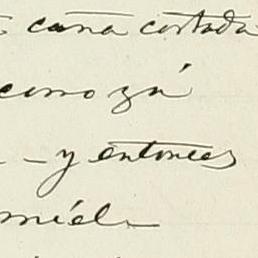 caña cortada
– y entonces
miel –